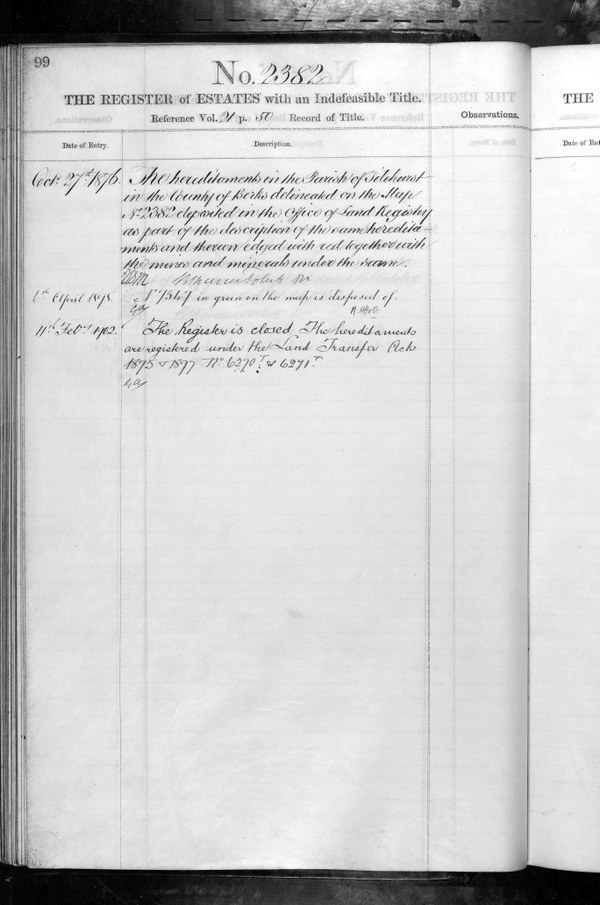 99
No. 2382
THE REGISTER of ESTATES with an Indefeasible Title.
Reference Vol. 21 p. 50 Record of Title.
Observations.
Date of Entry.
Description.
Octr. 27th 1876.
The hereditaments in the Parish of Tilehurst
in the County of Berks delineated on the Map
No. 2382 deposited in the Office of Land Registry
as part of the description of the same heredita-
ments and thereon edged with red together with
the mines and minerals under the same.
6th April 1898.
in green on the map is disposed of.
11th Feby. 1902.
The Register is closed. The hereditaments
are registered under the Land Transfer Acts
1875 & 1897 Nos. 6270T & 6271T
THE
Date of Ent